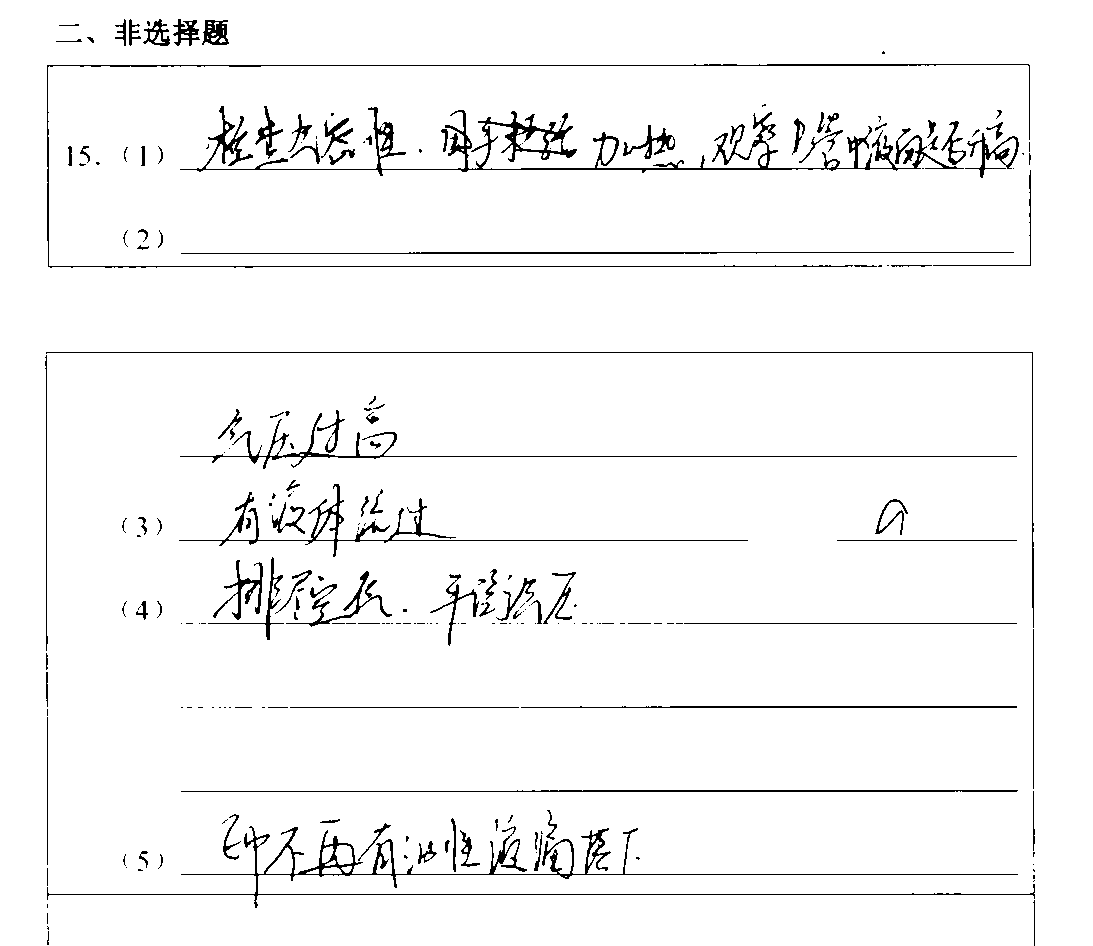 二、非选择题
15.（1）检查气密性．用手 加热，观察 管中液面是否升高
（2）
气压过高
（3）有液体流过
（4）排尽空气．平 气压
（5）E中不再有油性液滴落下．